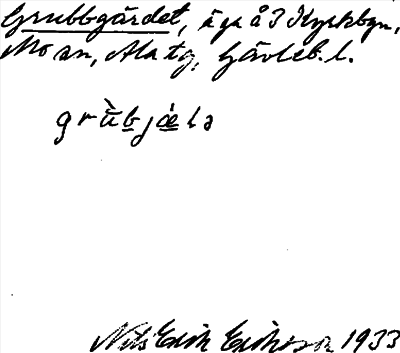 Grubbgärdet, äga å 3 Kyrkbyn,
Mo sn, Ala tg, Gävleb. l.
grùbjæ̀lə
Nils Erik Eriksson 1933